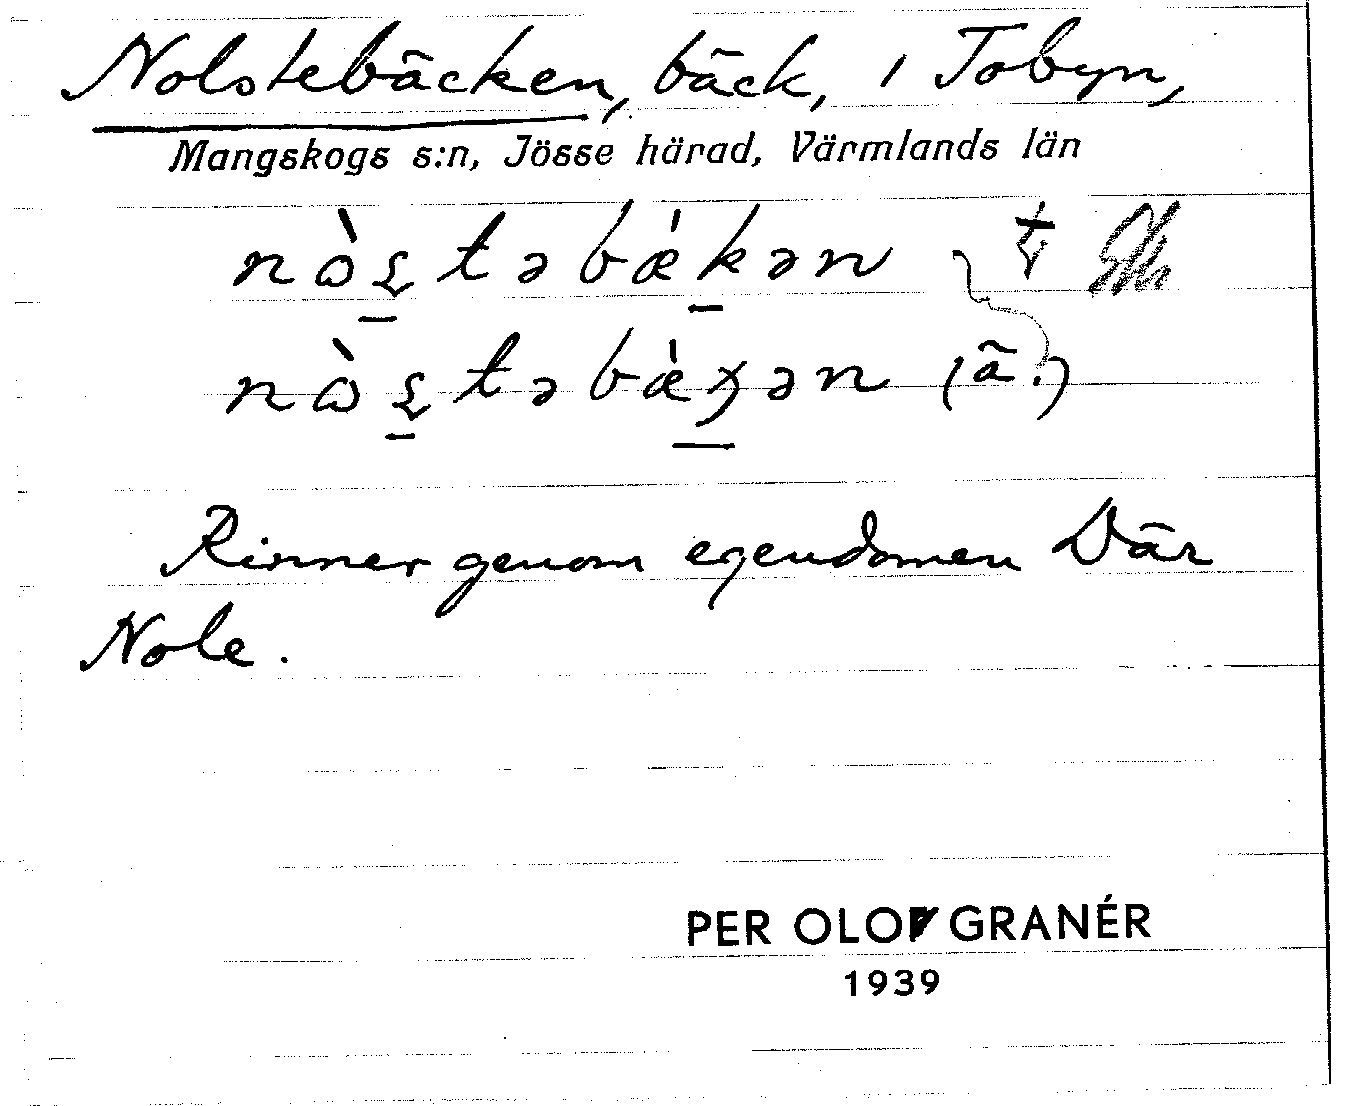 Nolstebäcken, bäck, i Tobyn,
Mangskogs s:n, Jösse härad, Värmlands län
nὼs̠təbæ̀k̠ən
nὼs̠təbæ̀χ̠ən (ä.)
Rinner genom egendomen Där
Nole.
PER OLOF GRANÉR
1939